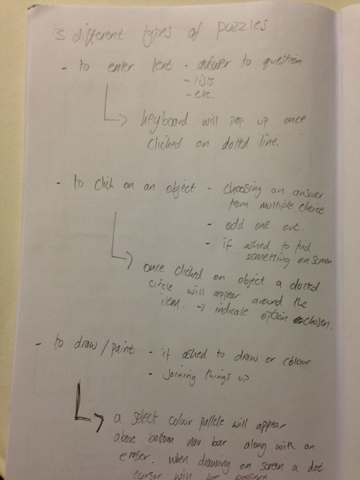 3 different types of puzzles
- to enter text - answer to question
- lists
- etc.
keyboard will pop up once
clicked on dotted line.
- to click on an object - choosing an answer
from multiple choice
- odd one out.
- if asked to find
something on screen
once clicked on object a dotted
circle will appear around the
item. → indicate option chosen.
- to draw/paint - if asked to draw or colour
- joining things up
a select colour pallete will appear
above bottom nav bar along with an
eraser. when drawing on screen a dot
cursor will be